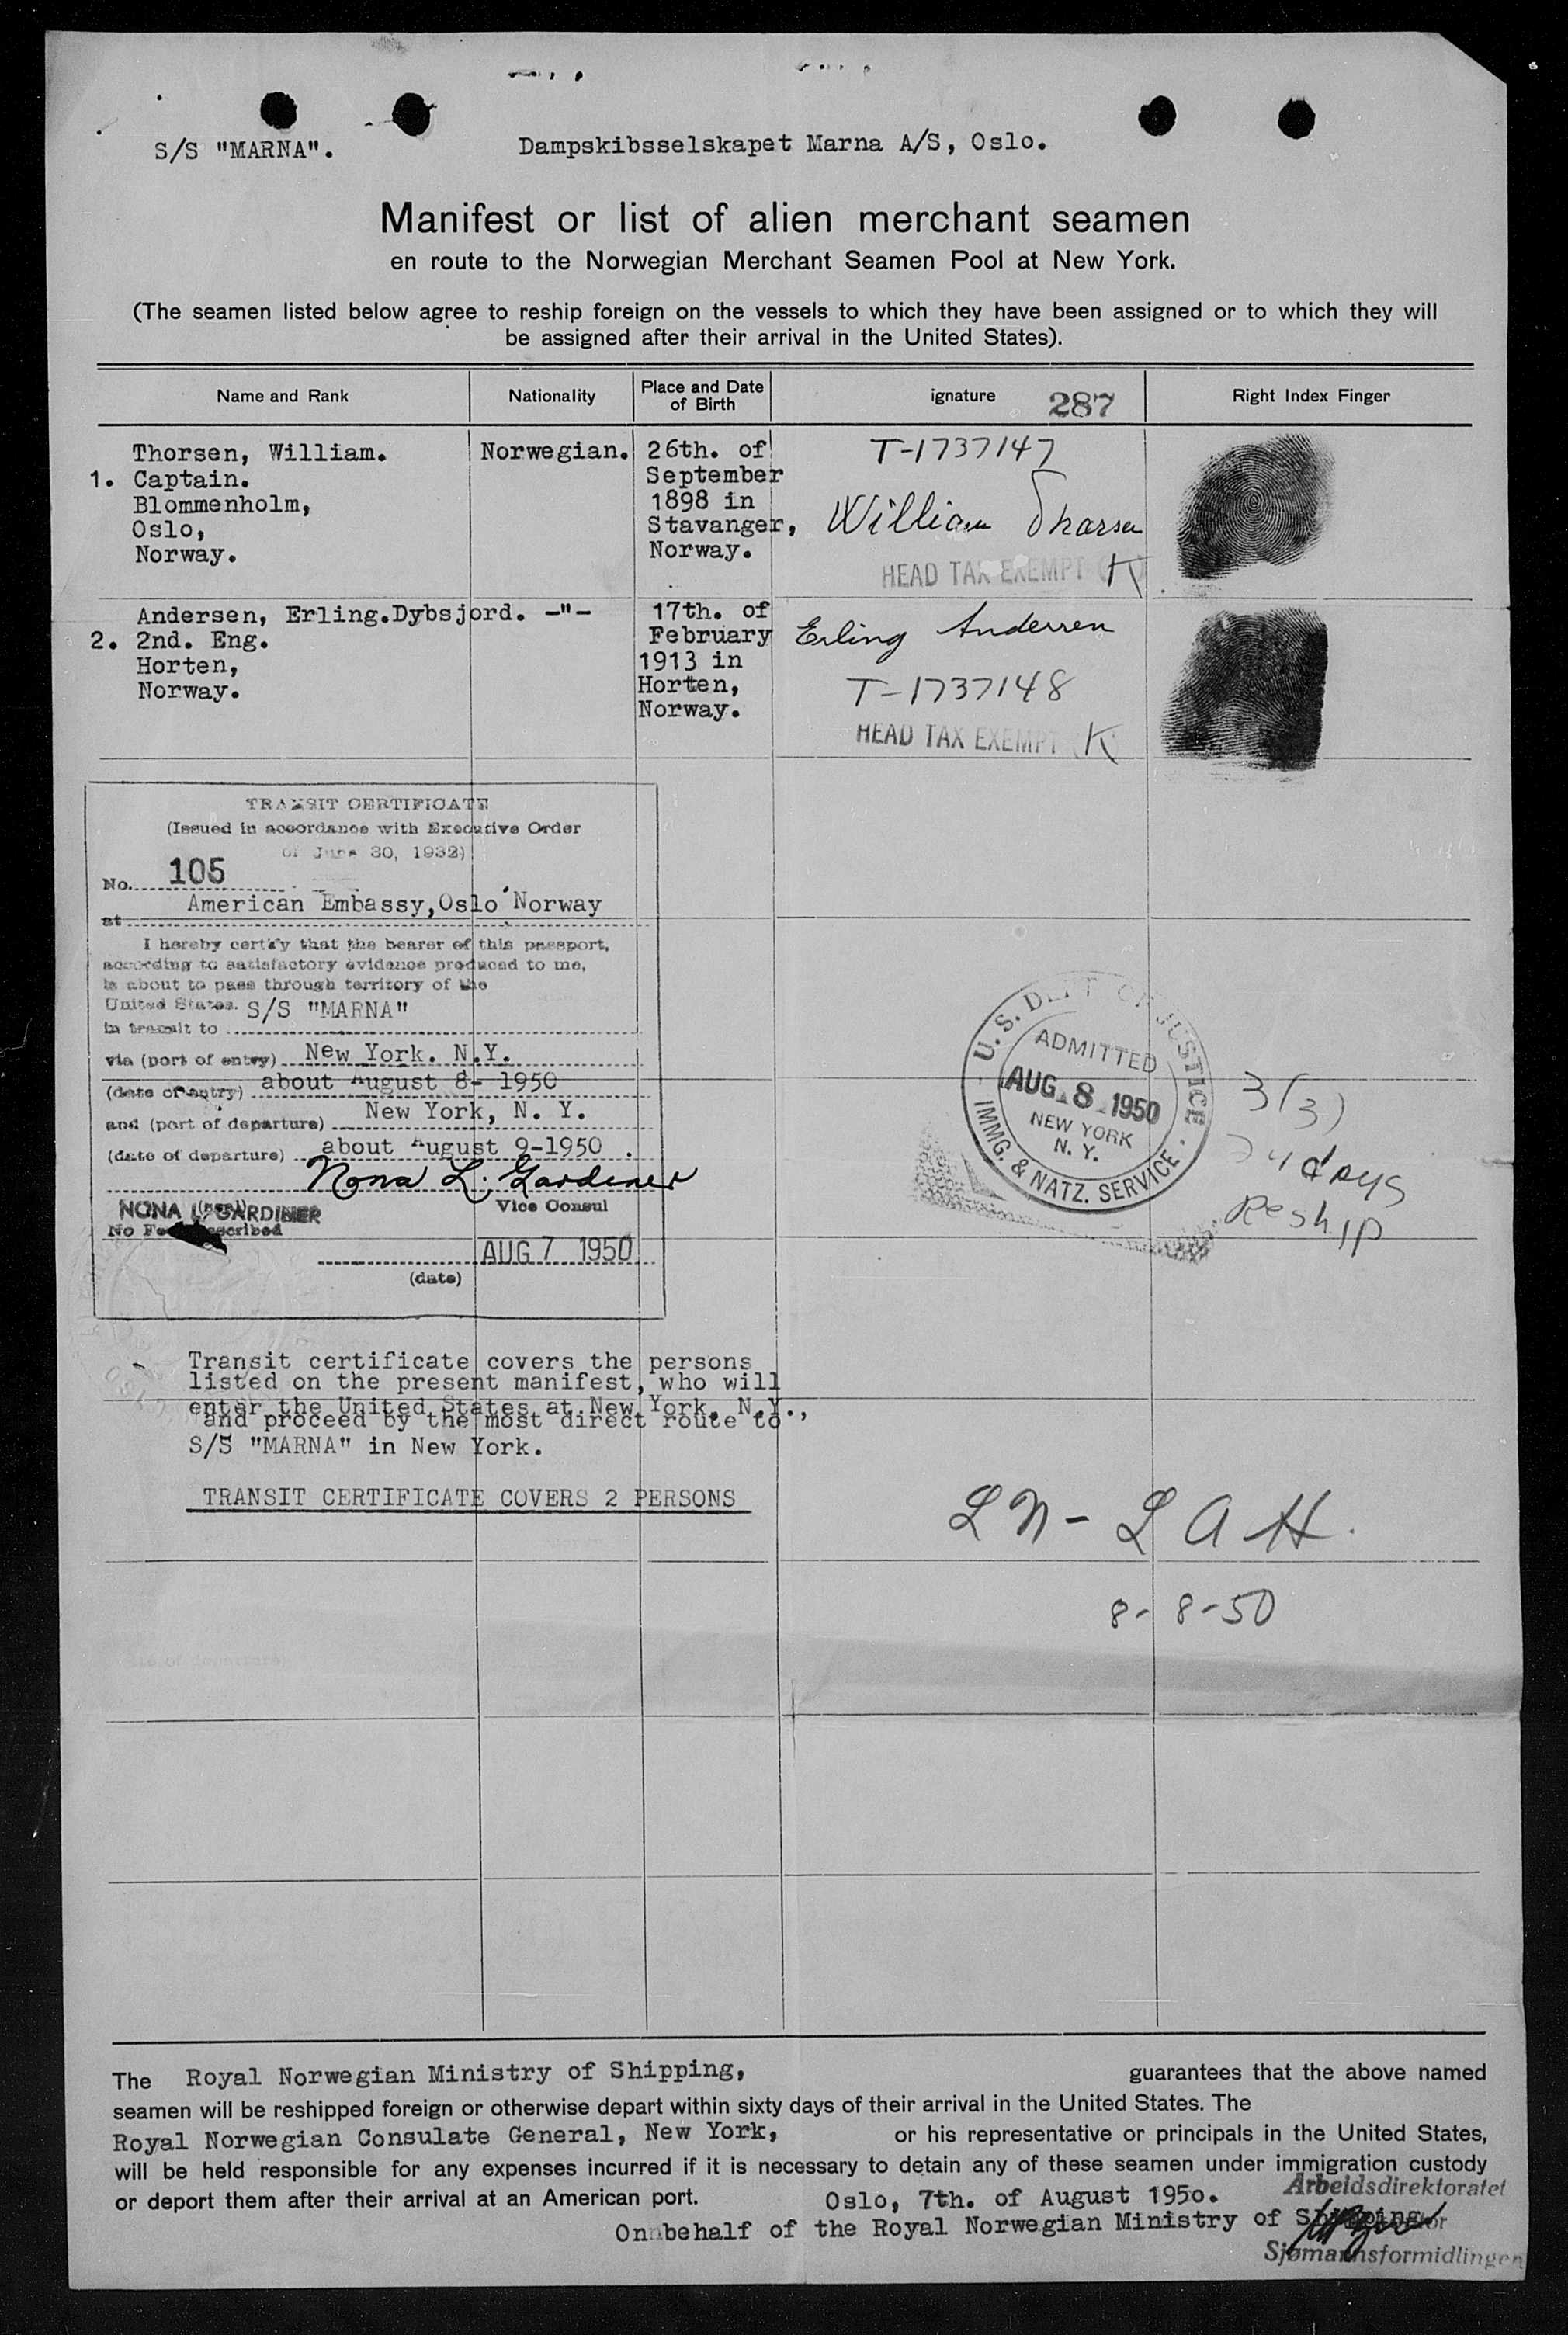 S/S "MARNA".
Dampskibsselskapet Marna A/S, Oslo.
Manifest or list of alien merchant seamen
en route to the Norwegian Merchant Seamen Pool at New York.
(The seamen listed below agree to reship foreign on the vessels to which they have been assigned or to which they will
be assigned after their arrival in the United States).
Name and Rank
Nationality
Place and Date
of Birth
ignature
287
Right Index Finger
Thorsen, William.
1. Captain.
Blommenholm,
Oslo,
Norway.
Norwegian.
26th. of
September
1898 in
Stavanger,
Norway.
T-1737147
William Thorsen
HEAD TAX EXEMPT K
Andersen, Erling.Dybsjord.
2. 2nd. Eng.
Horten,
Norway.
-"-
17th. of
February
1913 in
Horten,
Norway.
Erling Andersen
T-1737148
HEAD TAX EXEMPT K
TRANSIT CERTIFICATE
(Issued in accordance with Executive Order
of June 30, 1932)
No. 105
at American Embassy, Oslo Norway
I hereby certify that the bearer of this passport,
according to satisfactory evidence produced to me,
is about to pass through territory of the
United States.
in transit to S/S "MARNA"
via (port of entry) New York. N.Y.
(date of entry) about August 8- 1950
and (port of departure) New York, N. Y.
(date of departure) about August 9-1950 .
Nona L. Gardiner
NONA L. GARDINER
Vice Consul
No Fee Prescribed
AUG 7 1950
(date)
U. S. DEPT OF JUSTICE
ADMITTED
AUG 8 1950
NEW YORK
N. Y.
IMMG. & NATZ. SERVICE
3(3)
days
Reship
Transit certificate covers the persons
listed on the present manifest, who will
enter the United States at New York, N.Y.,
and proceed by the most direct route to
S/S "MARNA" in New York.
TRANSIT CERTIFICATE COVERS 2 PERSONS
LN- LAH.
8-8-50
The Royal Norwegian Ministry of Shipping, guarantees that the above named
seamen will be reshipped foreign or otherwise depart within sixty days of their arrival in the United States. The
Royal Norwegian Consulate General, New York, or his representative or principals in the United States,
will be held responsible for any expenses incurred if it is necessary to detain any of these seamen under immigration custody
or deport them after their arrival at an American port.
Oslo, 7th. of August 1950.
Arbeidsdirektoratet
On behalf of the Royal Norwegian Ministry of Shipping
Sjømannsformidlingen